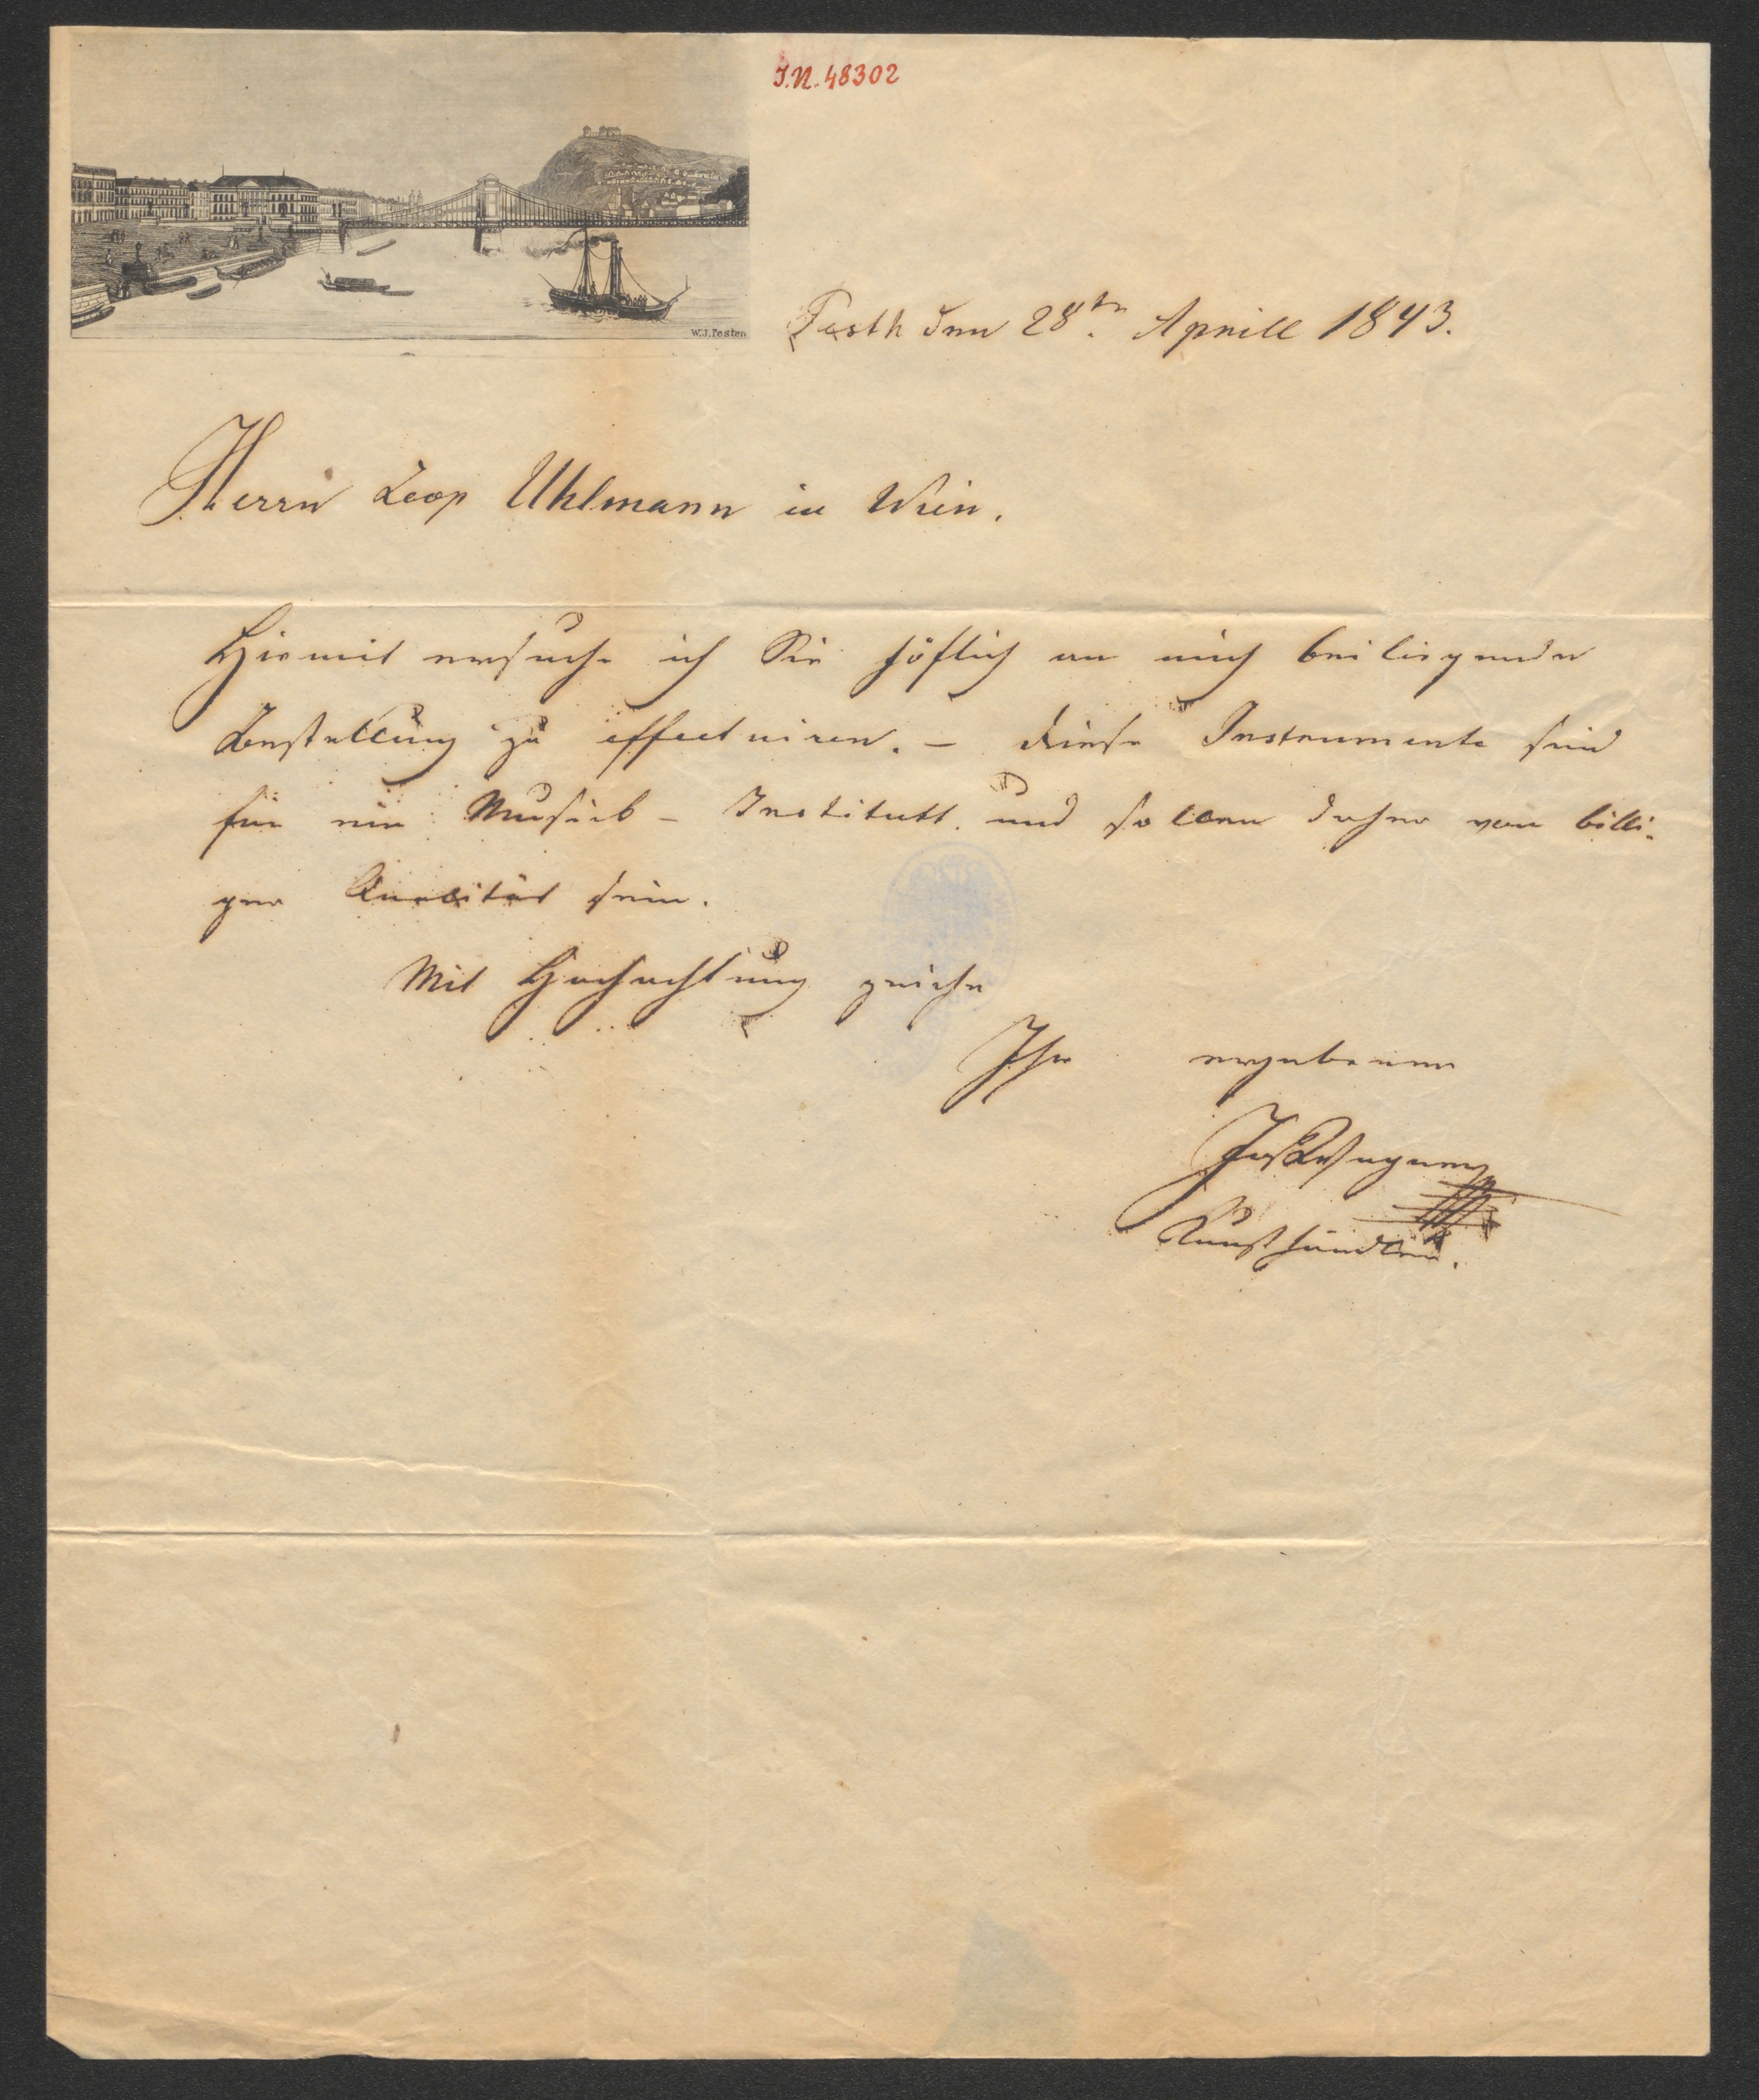 I.N. 48302
W. J. Pesten
Pesth den 28tn. Aprill 1843.
Herrn Leop Uhlmann in Wien.
Hiemit ersuche ich Sie höflich an mich beiliegende
Bestellung zu effectuiren. – Diese Instrumente sind
für ein Musick – Institutt und sollen daher von billi-
ger Qualität sein.
Mit Hochachtung zeichne
Ihr ergebener
Jos Wagner
Kunsthändler.